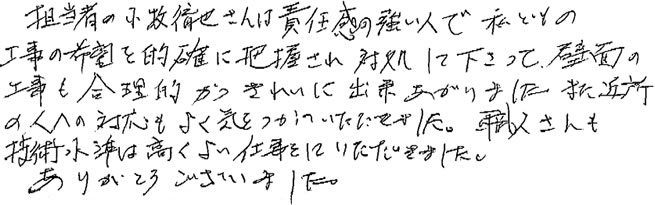 担当者の小牧徹也さんは責任感の強い人で 私どもの
工事の希望を的確に把握され 対処して下さって、壁面の
工事も合理的かつきれいに出来あがりました また近所
の人への対応もよく気をつかっていただきました。職人さんも
技術水準は高くよい仕事をしていただきました。
ありがとうございました。